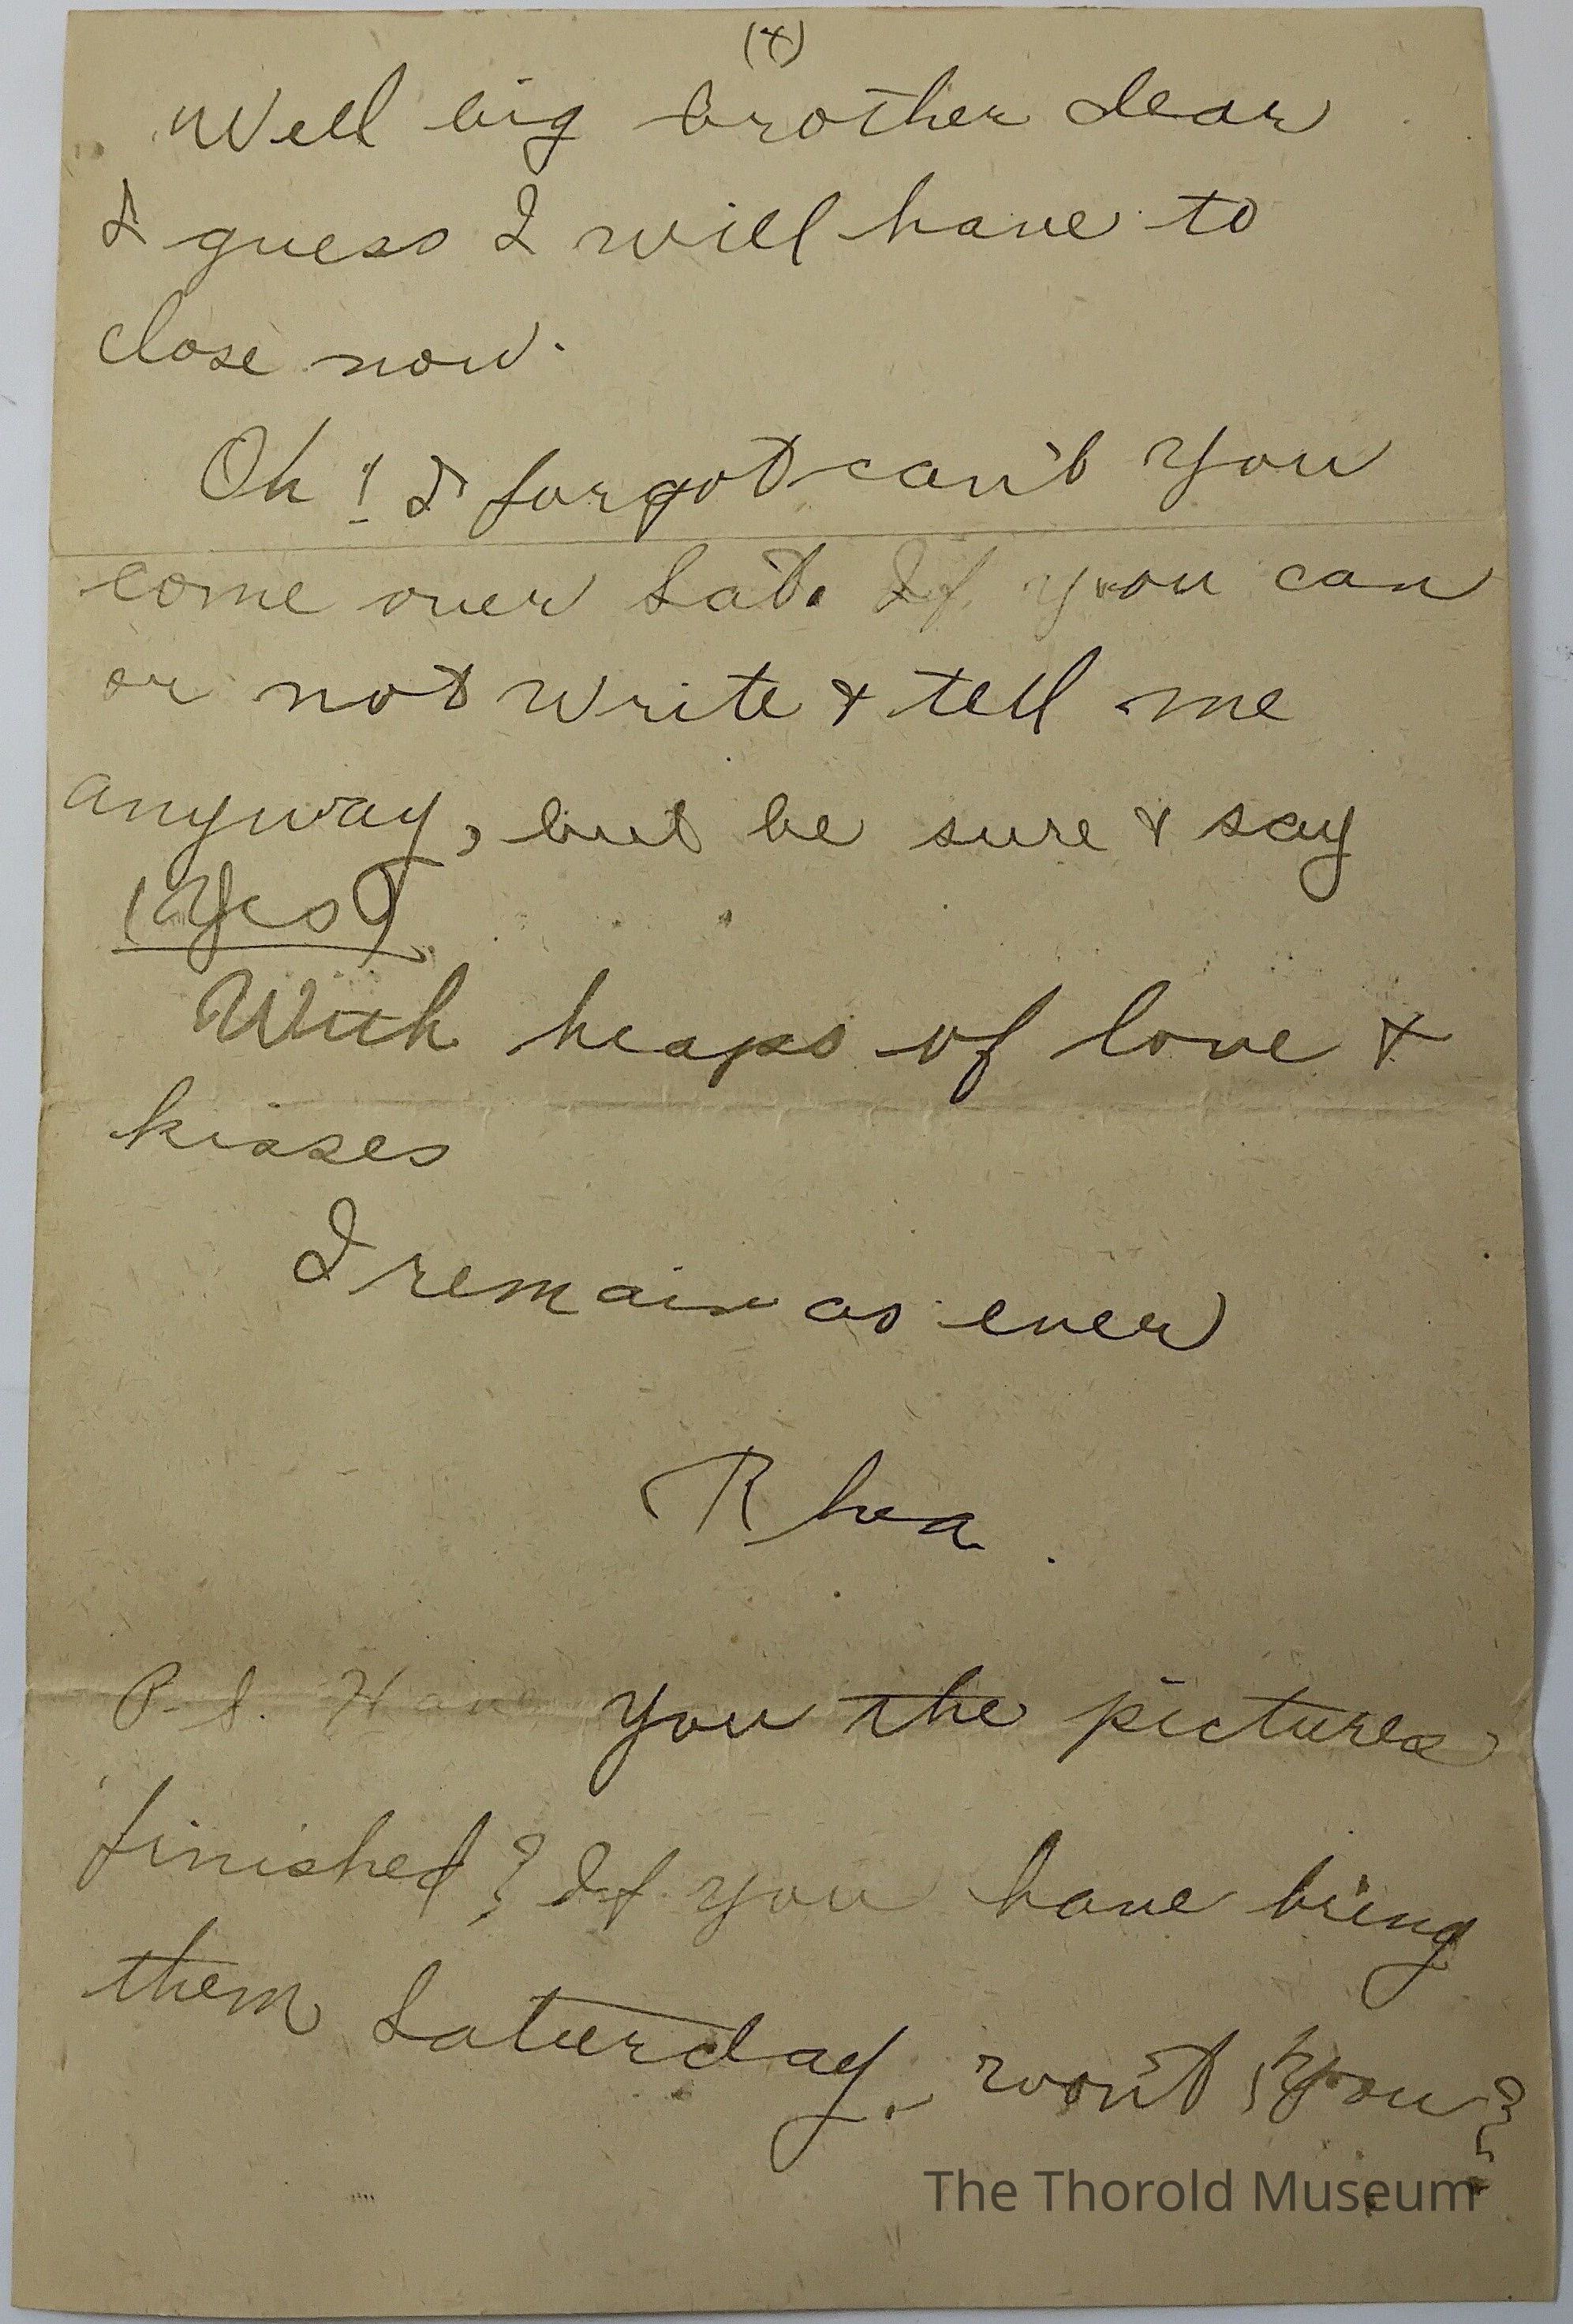 (4)
Well big brother dear
I guess I will have to
close now.
Oh! I forgot can't you
come over Sat. If you can
or not write & tell me
anyway, but be sure & say
(Yes)
With heaps of love &
kisses
I remain as ever
Rhea.
P.S. Have you the pictures
finished? If you have bring
them Saturday, won't you?
The Thorold Museum